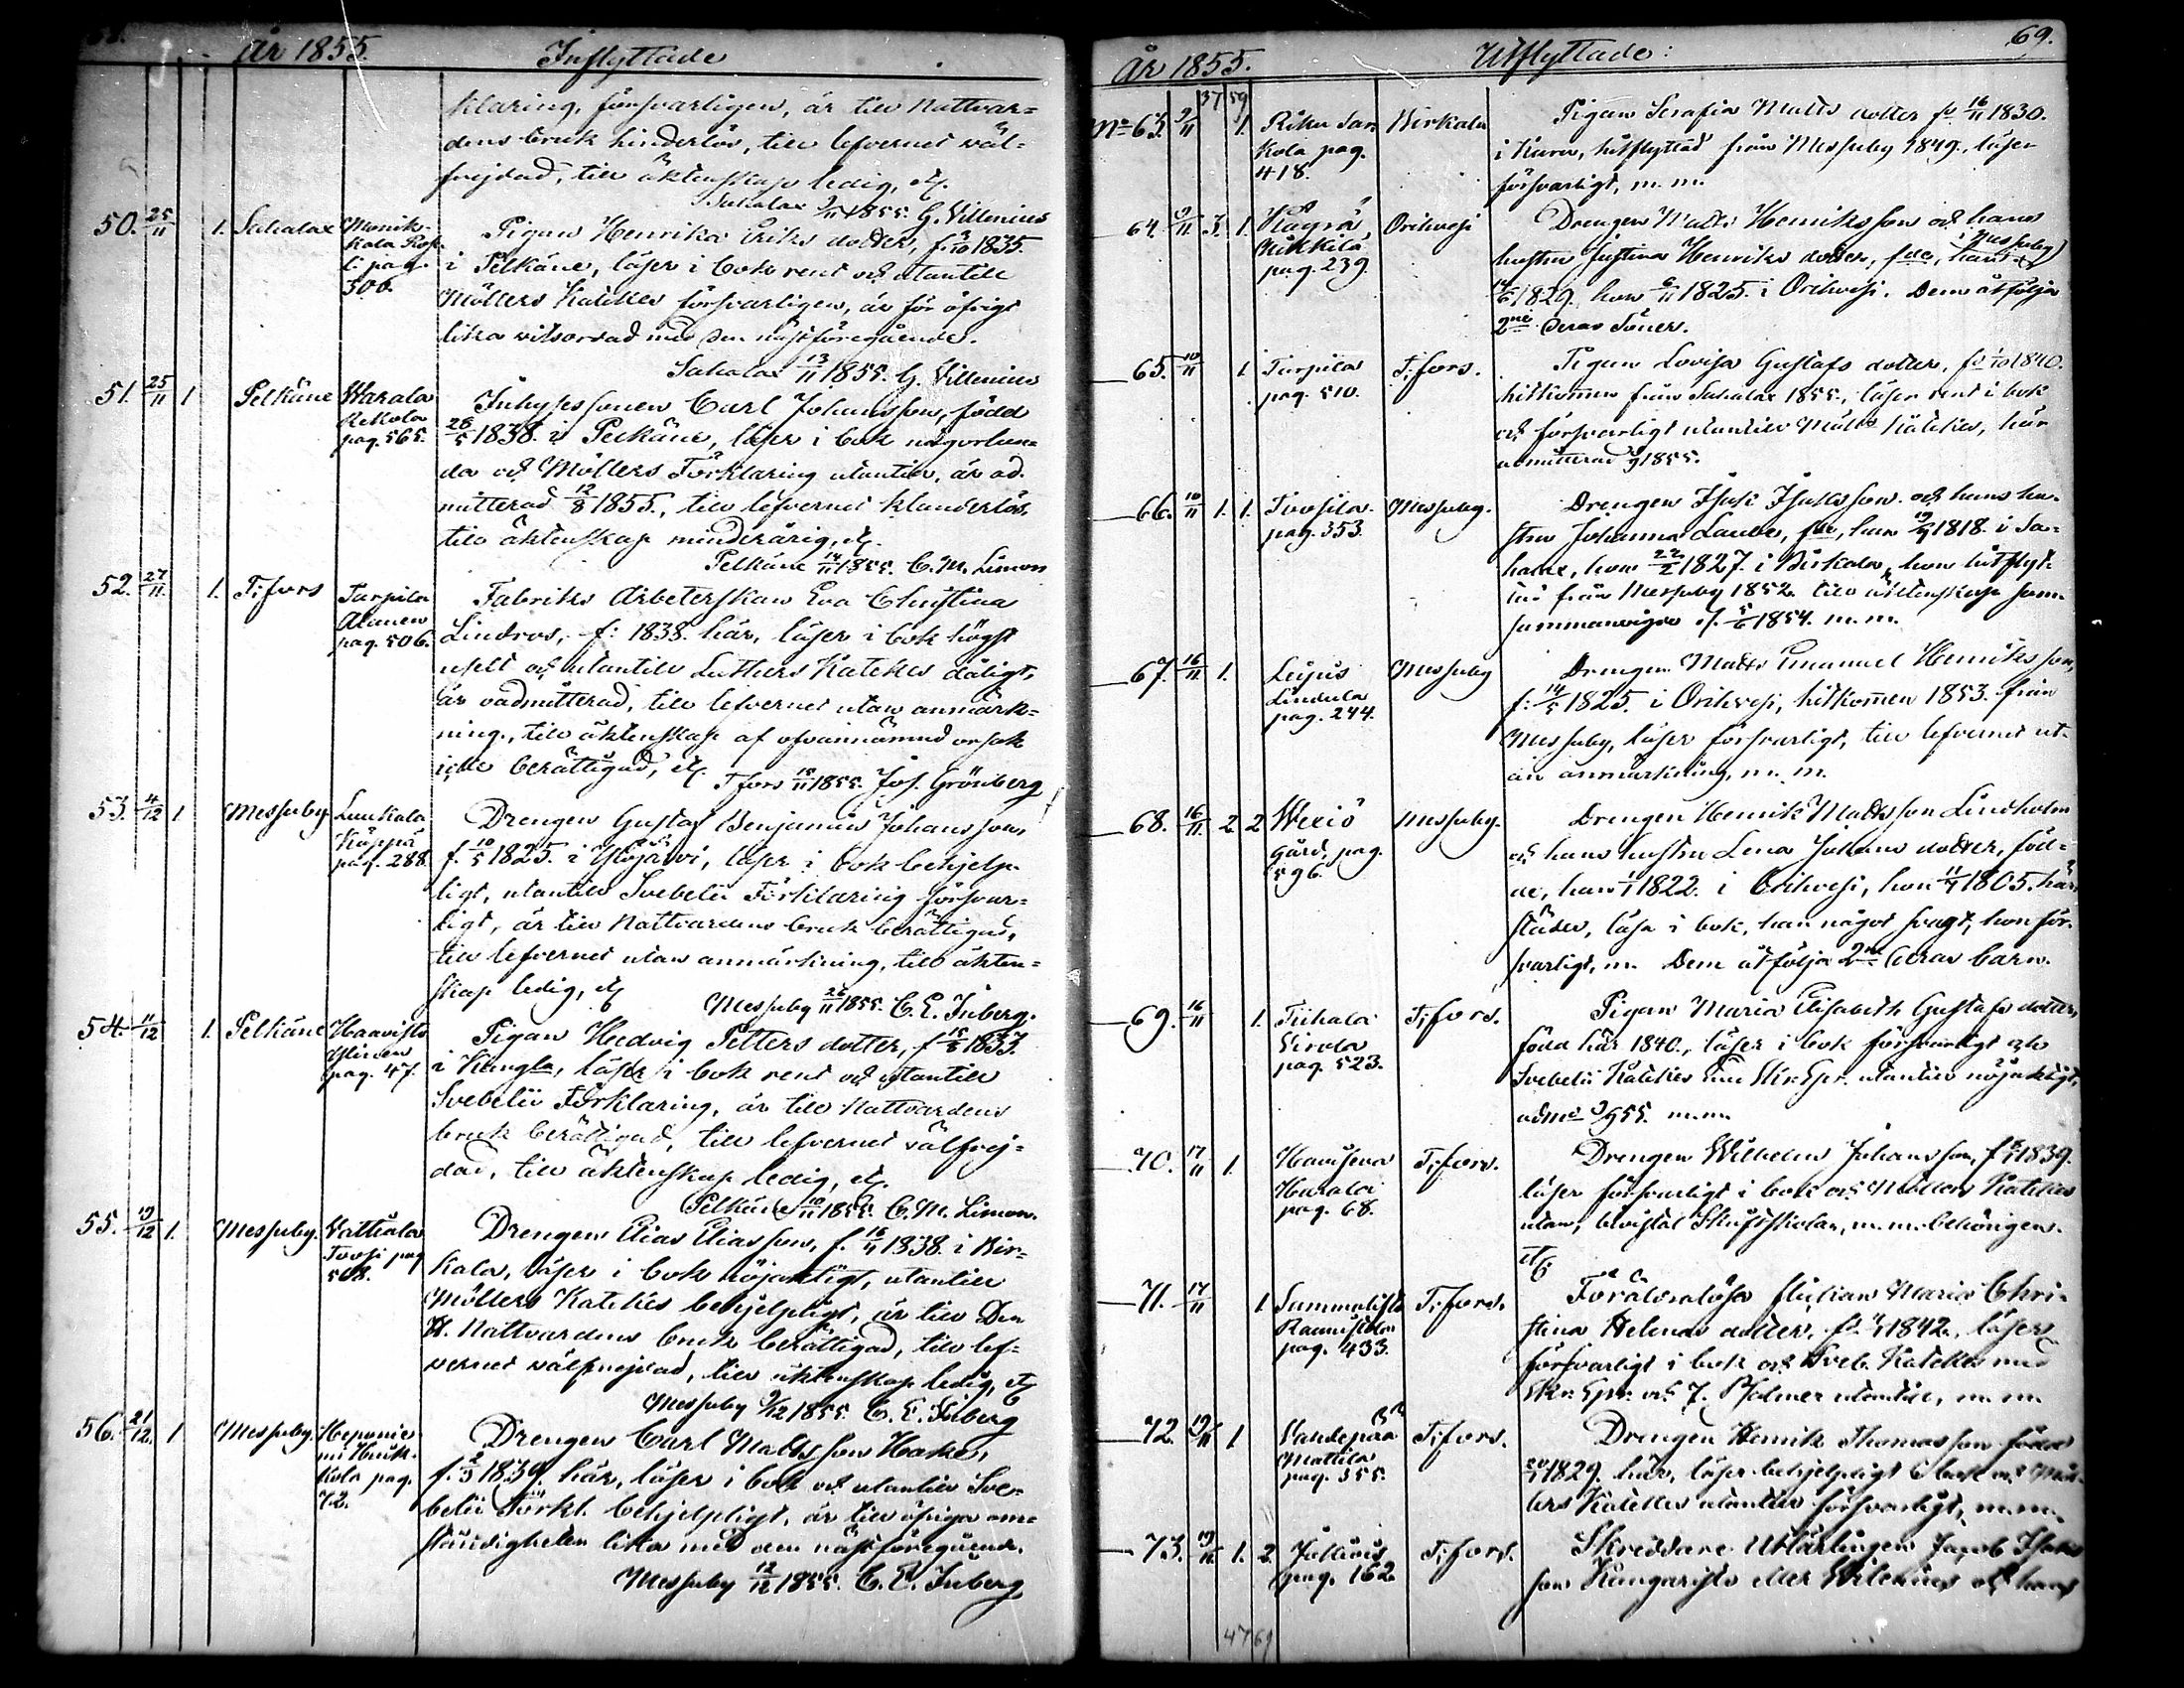 År 1855. Inflyttade
klaring, försvarligen, är till Nattvar=
dens bruk hinderlös, till lefvernet väl=
frejdad, till äktenskap ledig, etc.
Sahalax 9/11 1855. G. Villenius
50. 25/11 1. Sahalax pag. 306. Pigan Henrika Eriks dotter, f. 1835.
i Pelkäne, läser i bok rent och utantill
Möllers Kateches försvarligen, är för öfrigt
lika vitsordad med den nästföregående.
Sahalax 13/11 1855. G. Villenius
51. 25/11 1 Pelkäne Warala Rekola pag. 565. Inhyses sonen Carl Johansson, född
28/5 1838. i Pelkäne, läser i bok någorlun=
da och Möllers Förklaring utantill, är ad=
mitterad 12/8 1855., till lefvernet klanderlös,
till äktenskap minderårig, etc.
Pelkäne 14/11 1855. C. M. Limon
52. 27/11. 1. T:fors Tarpila Alanen pag. 506. Fabriks Arbeterskan Eva Christina
Lindros, f: 1838. här, läser i bok högst
uselt och utantill Luthers Kateches dåligt,
är oadmitterad, till lefvernet utan anmärk=
ning, till äktenskap af ofvannämnd orsak
icke berättigad, etc. T:fors 15/11 1855. Jos. Grönberg
53. 4/12 1 Messuby Luukala Käppä pag. 288. Drengen Gustaf Benjamin Johansson,
f. 10/5 1825. i Ylöjärvi, läser i bok behjelp=
ligt, utantill Svebelii Förklaring försvar=
ligt, är till Nattvardens bruk berättigad,
till lefvernet utan anmärkning, till äkten=
skap ledig, etc. Messuby 26/11 1855. C. E. Inberg.
54. 11/12 1. Pelkäne Haavisto Ylinen pag. 47. Pigan Hedvig Petters dotter, f. 15/5 1833.
i Kangla, läser i bok rent och utantill
Svebelii Förklaring, är till Nattvardens
bruk berättigad, till lefvernet välfrej=
dad, till äktenskap ledig, etc.
Pelkäne 10/11 1855. C. M. Limon.
55. 19/12 1. Messuby. Vattiala pag 508. Drengen Elias Eliasson, f. 16/4 1838. i Bir=
kala, läser i bok nöjaktigt, utantill
Möllers Kateches behjelpligt, är till Den
H. Nattvardens bruk berättigad, till lef=
vernet välfrejdad, till äktenskap ledig, etc
Messuby 9/12 1855. C. E. Inberg
56. 21/12. 1 Messuby. Heponie=mi pag. 72. Drengen Carl Matts son Hake,
f. 2/3 1834. här, läser i bok och utantill Sve=
belii Förkl. behjelpligt, är till öfriga om=
ständigheter lika med den nästföregående.
Messuby 12/12 1855. C. E. Inberg
År 1855. Utflyttade: 69.
37 59
No 63. 9/11 1. pag. 418. Birkala Pigan Serafia Matts dotter fd 16/11 1830.
i Kuru, hitflyttad från Messuby 1849., läser
försvarligt, m. m.
64. 9/11 3. 1. Hägrä, Mikkila pag. 239. Orihvesi Drengen Matts Henriksson och hans
hustru Justina Henriks dotter, fdde, han (i Messuby)
14/6 1829. hon 6/11 1825. i Orihvesi. Dem åtfölja
2ne deras Söner.
65. 10/11 1 Tarpila pag. 510. T:fors. Pigan Lovisa Gustafs dotter, fd 1/10 1840.
hitkommen från Sahalax 1855., läser rent i bok
och försvarligt utantill Möllers Kateches, här
admitterad 1855.
66. 10/11 1. 1. pag. 353. Messuby. Drengen Isak Isaksson och hans hu=
stru Johanna, fdde, han 1818. i Sa=
halax, hon 22/2 1827. i Birkala, hon hitflyt=
tad från Messuby 1852. till äktenskap
sammanvigde d. 5/6 1854. m. m.
67. 16/11 1. Leijus Lindula pag. 244. Messuby Drengen Matts Emanuel Henriksson,
f: 14/5 1825. i Orihvesi, hitkommen 1853. från
Messuby, läser försvarligt, till lefvernet ut=
an anmärkning, m. m.
68. 16/11 2. 2 Wexiö gård, pag. 596. Messuby. Drengen Henrik Mattsson Lindholm
och hans hustru Lena Johans dotter, föd=
de, han 1/1 1822. i Orihvesi, hon 11/7 1805. här=
städes, läsa i bok, han något svagt, hon för=
svarligt, m. Dem åtfölja 2ne deras barn.
69. 16/11 1. Tiihala Sirola pag. 523. T:fors. Pigan Maria Elisabeth Gustafs dotter,
född här 1840., läser i bok försvarligt och
Svebelii Kateches utantill nöjaktigt,
adm. 55. m.m.
70. 17/11 1. Haviseva Harala pag. 68. T:fors. Drengen Wilhelm Johansson, f. 1839.
läser försvarligt i bok och Möllers Kateches
utan, m. m. behörigen.
etc
71. 17/11 1 Summalisto pag. 433. T:fors. Föräldralösa flickan Maria Chri=
stina Helenas dotter, fd 1842., läser
försvarligt i bok och Sveb. Kateches med
Skr: Spr: och 7. Psalmer utantill, m. m.
72. 19/11 1 Vändepää Mattila pag. 355. T:fors. Drengen Henrik Thomasson född
1829. här, läser behjelpligt i bok och Möl=
lers Kateches utantill försvarligt, m.m.
73. 19/11 1. 2. pag. 162. T:fors. Skreddare Utlärlingen Jacob Isaks
son Kangaristo eller och hans
47 61